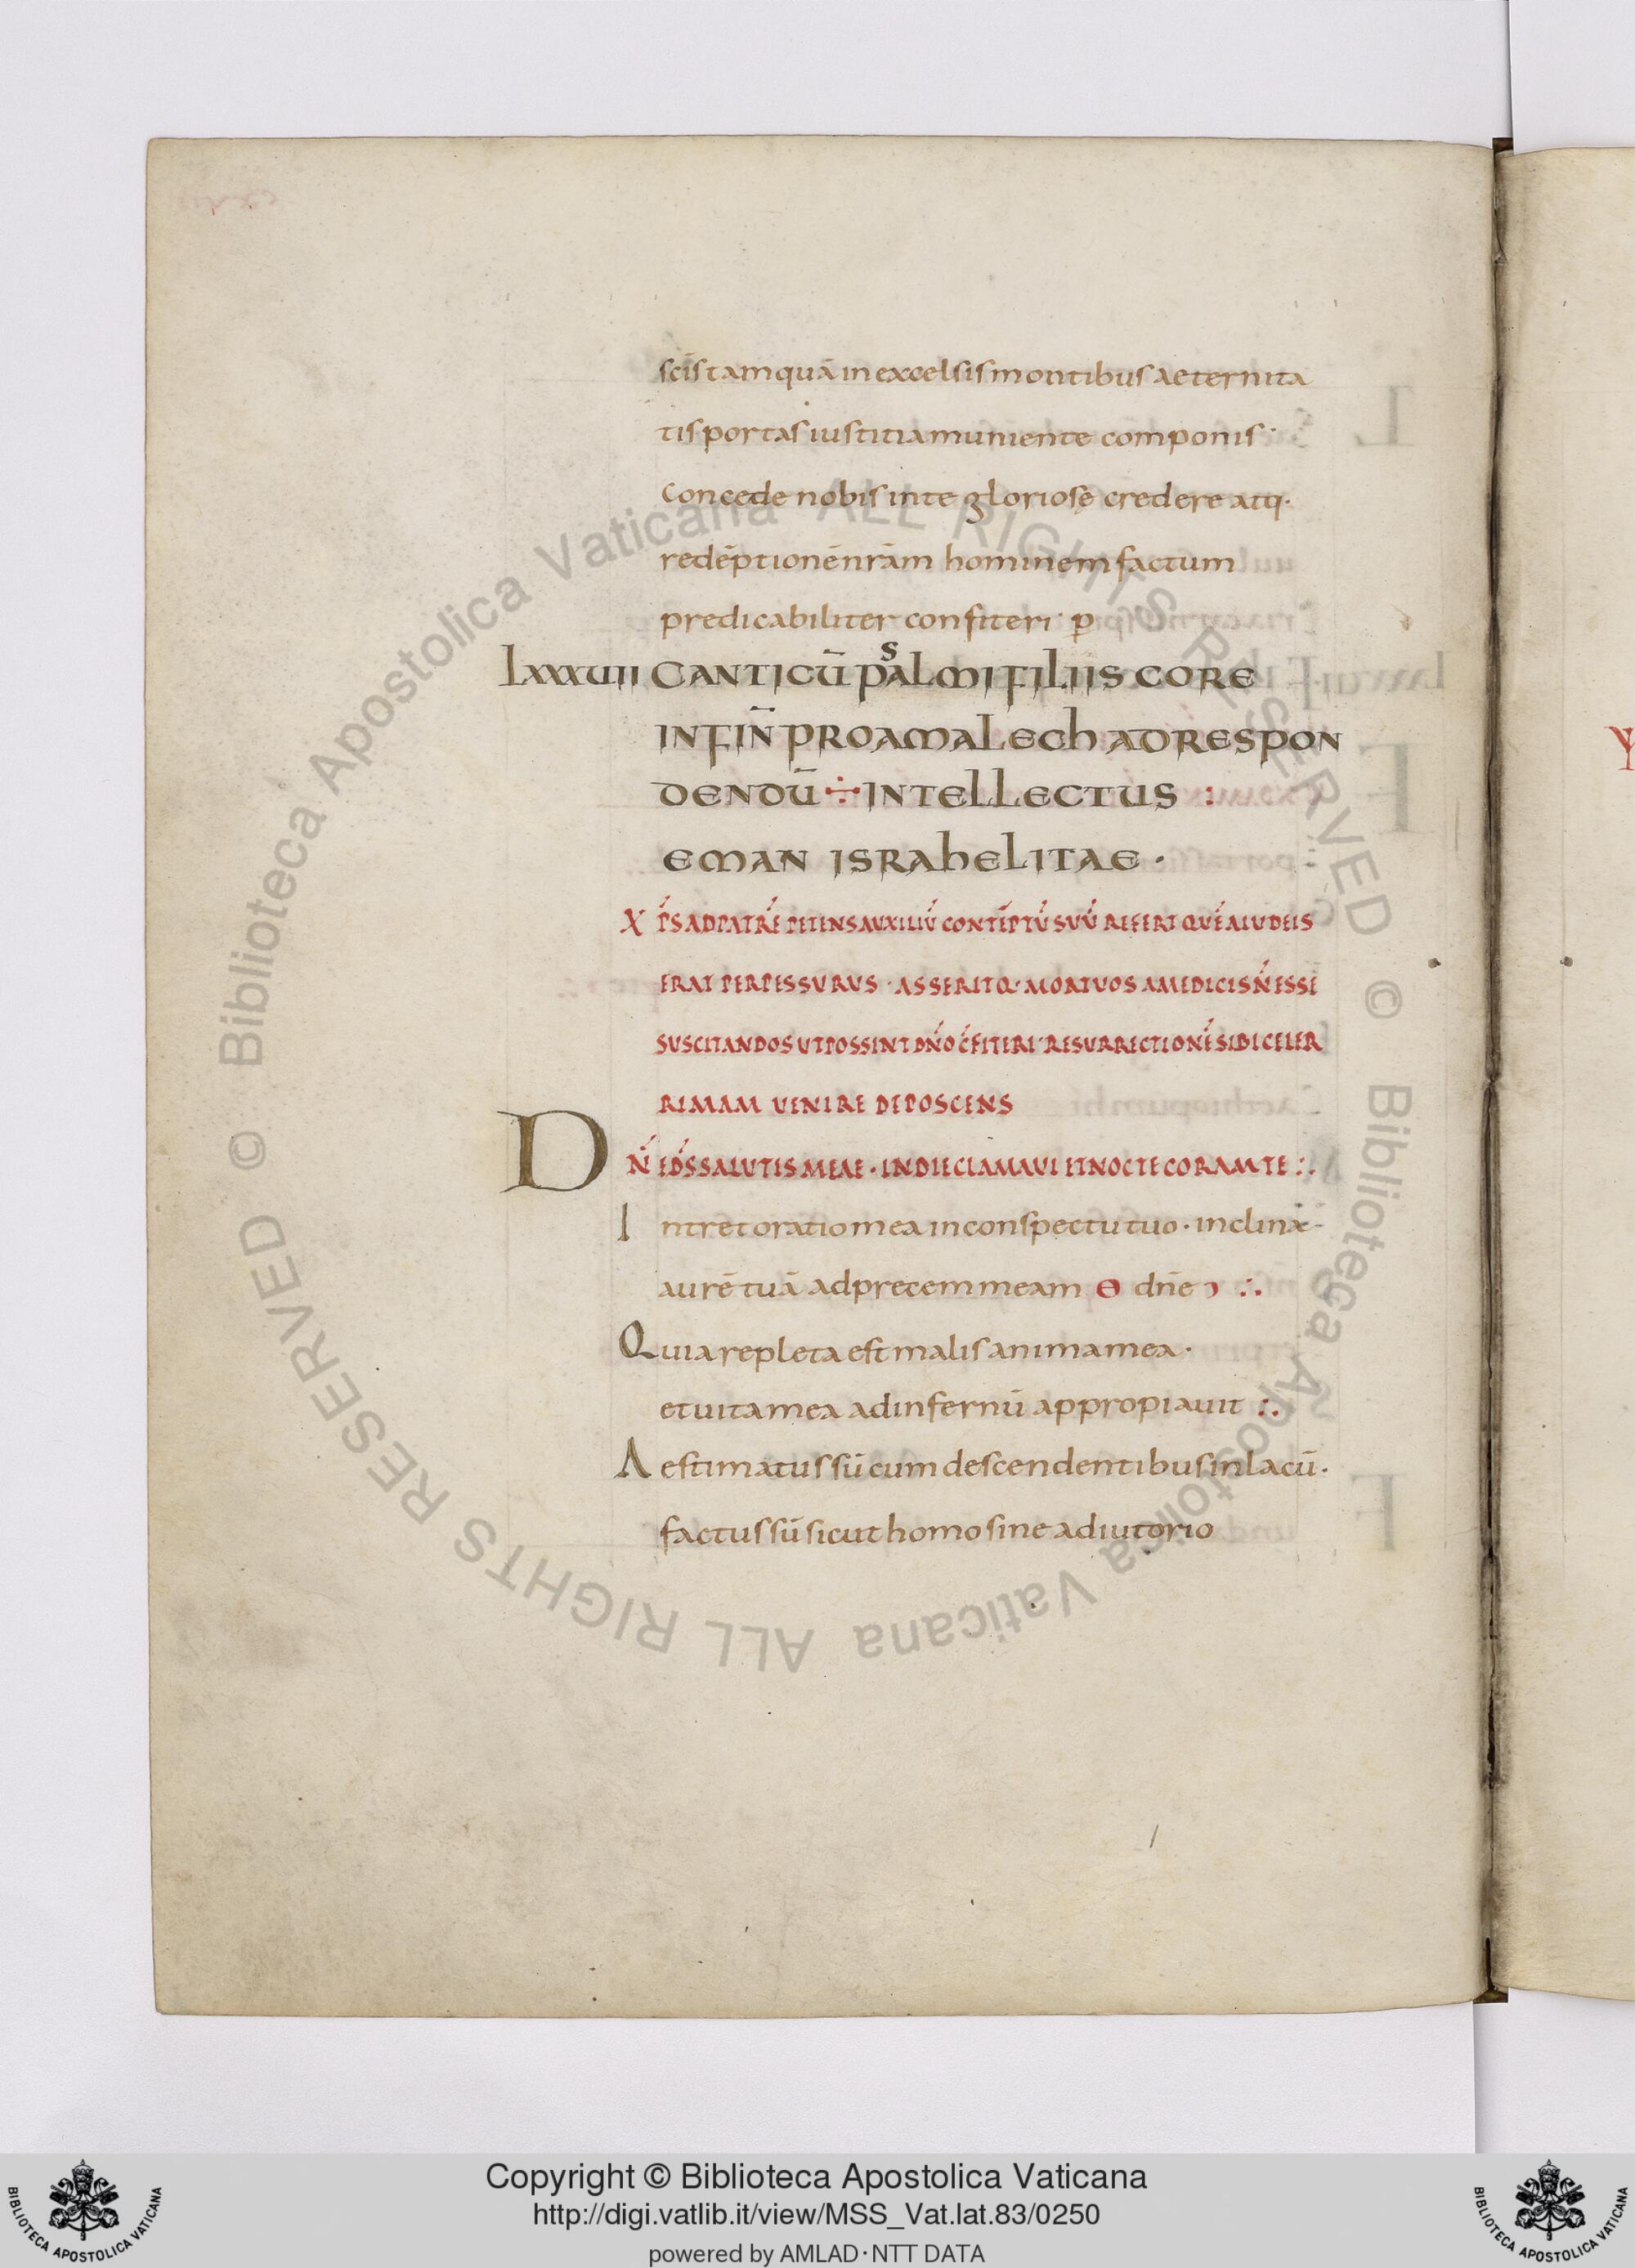 scīs tamquā in excelsis montibus aeternita
tis portas iustitia muniente componis·
Concede nobis in te gloriosę credere atq·
redēptionē nrām hominem factum
predicabiliter confiteri· p
LXXXVII CANTICŪ PSALMI FILIIS CORE
IN FIN̄ PRO AMALECH AD RESPON
DENDŪ ÷ INTELLECTUS :
EMAN ISRAHELITAE ·
XP̄S AD PATRĒ PETENS AUXILIŪ CONTĒPTŪ SUŪ REFERT QUĒ A IUDEIS
ERAT PERPESSURUS · ASSERITQ· MORTUOS A MEDICIS N̄ ESSE
SUSCITANDOS UT POSSINT DN̄O C̄FITERI· RESURRECTIONĒ SIBI CELER
RIMAM UENIRE DEPOSCENS
DN̄E DS̄ SALUTIS MEAE · IN DIE CLAMAVI ET NOCTE CORAM TE :.
Intret oratio mea in conspectu tuo · inclina
aurē tuā ad precem meam ɵ dn̄e :.
Quia repleta est malis anima mea ·
et uita mea ad infernū appropiauit :.
Aestimatus sū cum descendentibus in lacū·
factus sū sicut homo sine adiutorio
Copyright © Biblioteca Apostolica Vaticana
http://digi.vatlib.it/view/MSS_Vat.lat.83/0250
powered by AMLAD·NTT DATA
BIBLIOTECA APOSTOLICA VATICANA
BIBLIOTECA APOSTOLICA VATICANA
© Biblioteca Apostolica Vaticana ALL RIGHTS RESERVED
© Biblioteca Apostolica Vaticana ALL RIGHTS RESERVED